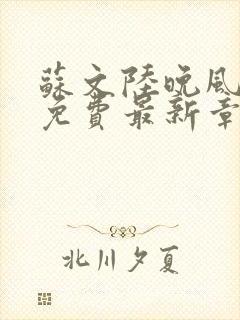 蘇文陸晚風
免費最新章
北川夕夏